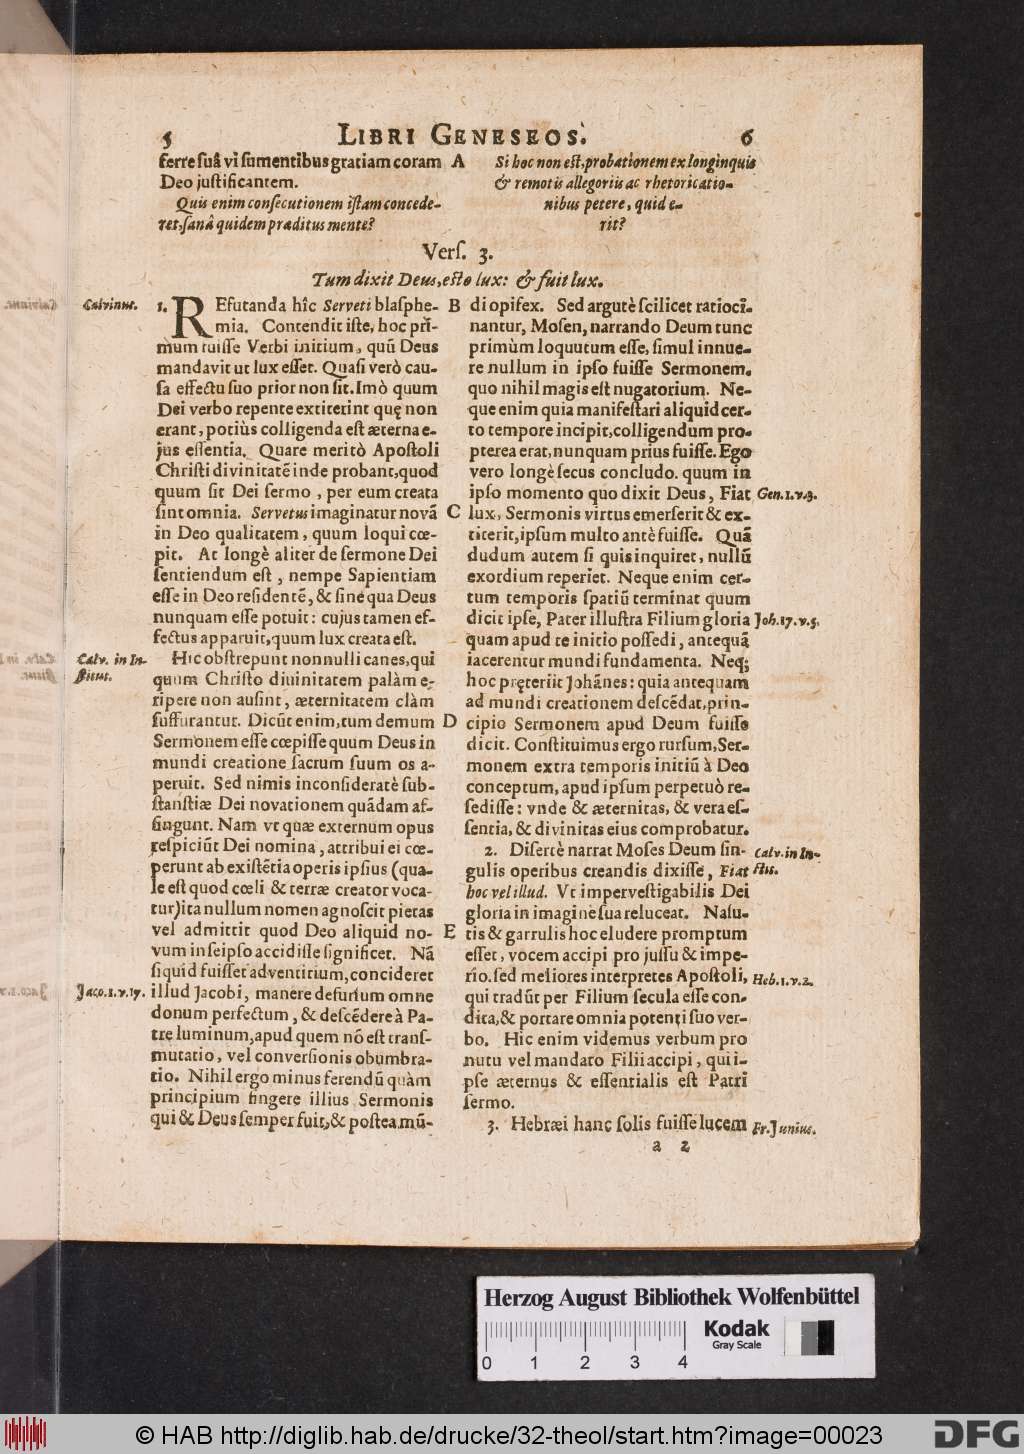 5 LIBRI GENESEOS. 6
ferre suâ vi sumentibus gratiam coram
Deo justificantem.
Quis enim consecutionem istam concede-
ret, sanâ quidem præditus mente?
A
Si hoc non est, probationem ex longinquis
& remotis allegoriis ac rhetoricatio-
nibus petere, quid e-
rit?
Vers. 3.
Tum dixit Deus, esto lux: & fuit lux.
Calvinus.
1. REfutanda hîc Serveti blasphe-
mia. Contendit iste, hoc pri-
mum fuisse Verbi initium, quũ Deus
mandavit ut lux esset. Quasi verò cau-
sa effectu suo prior non sit. Imò quum
Dei verbo repente extiterint quę non
erant, potiùs colligenda est æterna e-
jus essentia. Quare meritò Apostoli
Christi divinitatẽ inde probant, quod
quum sit Dei sermo, per eum creata
sint omnia. Servetus imaginatur novã
in Deo qualitatem, quum loqui cœ-
pit. At longè aliter de sermone Dei
sentiendum est, nempe Sapientiam
esse in Deo residentẽ, & sine qua Deus
nunquam esse potuit: cujus tamen ef-
fectus apparuit, quum lux creata est.
Calv. in In-
stitut.
Hic obstrepunt nonnulli canes, qui
quum Christo diuinitatem palàm e-
ripere non ausint, æternitatem clàm
suffurantur. Dicũt enim, tum demum
Sermonem esse cœpisse quum Deus in
mundi creatione sacrum suum os a-
peruit. Sed nimis inconsideratè sub-
stanstiæ Dei novationem quãdam af-
fingunt. Nam vt quæ externum opus
respiciũt Dei nomina, attribui ei cœ-
perunt ab existẽtia operis ipsius (qua-
le est quod cœli & terræ creator voca-
tur) ita nullum nomen agnoscit pietas
vel admittit quod Deo aliquid no-
vum in seipso accidisse significet. Nã
siquid fuisset adventitium, concideret
Jaco. 1. v. 17.
illud Jacobi, manere desursum omne
donum perfectum, & descẽdere à Pa-
tre luminum, apud quem nõ est trans-
mutatio, vel conversionis obumbra-
tio. Nihil ergo minus ferendũ quàm
principium fingere illius Sermonis
qui & Deus semper fuit, & postea mũ-
B
C
D
E
di opifex. Sed argutè scilicet ratioci-
nantur, Mosen, narrando Deum tunc
primùm loquutum esse, simul innue-
re nullum in ipso fuisse Sermonem.
quo nihil magis est nugatorium. Ne-
que enim quia manifestari aliquid cer-
to tempore incipit, colligendum pro-
pterea erat, nunquam prius fuisse. Ego
vero longè secus concludo. quum in
ipso momento quo dixit Deus, Fiat
Gen. 1. v. 3.
lux, Sermonis virtus emerserit & ex-
titerit, ipsum multo antè fuisse. Quã
dudum autem si quis inquiret, nullũ
exordium reperiet. Neque enim cer-
tum temporis spatiũ terminat quum
dicit ipse, Pater illustra Filium gloria
Joh. 17. v. 5.
quam apud te initio possedi, antequã
iacerentur mundi fundamenta. Neq;
hoc pręteriit Johãnes: quia antequam
ad mundi creationem descẽdat, prin-
cipio Sermonem apud Deum fuisse
dicit. Constituimus ergo rursum, Ser-
monem extra temporis initiũ à Deo
conceptum, apud ipsum perpetuò re-
sedisse: vnde & æternitas, & vera es-
sentia, & divinitas eius comprobatur.
2. Disertè narrat Moses Deum sin-
Calv. in In-
stit.
gulis operibus creandis dixisse, Fiat
hoc vel illud. Vt impervestigabilis Dei
gloria in imagine sua reluceat. Nasu-
tis & garrulis hoc eludere promptum
esset, vocem accipi pro jussu & impe-
rio. sed meliores interpretes Apostoli,
Heb. 1. v. 2.
qui tradũt per Filium secula esse con-
dita, & portare omnia potenti suo ver-
bo. Hic enim videmus verbum pro
nutu vel mandato Filii accipi, qui i-
pse æternus & essentialis est Patri
sermo.
3. Hebræi hanc solis fuisse lucem
Fr. Junius.
a 2
Herzog August Bibliothek Wolfenbüttel
0 1 2 3 4
Kodak
Gray Scale
© HAB http://diglib.hab.de/drucke/32-theol/start.htm?image=00023
DFG